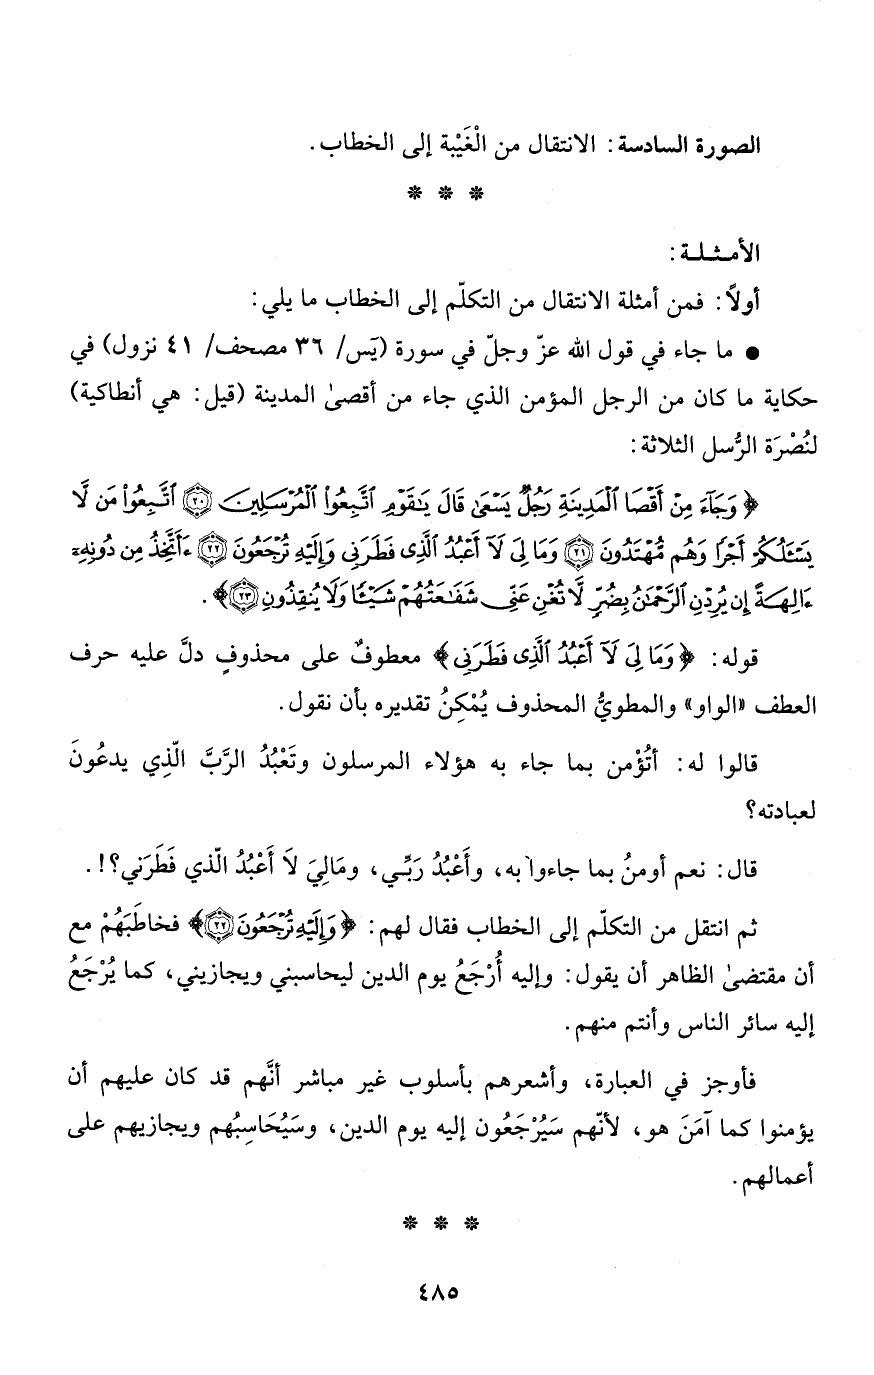 الصورة السادسة: الانتقال من الْغَيْبة إلى الخطاب.
* * *
الأمـثـلـة:
أولاً: فمن أمثلة الانتقال من التكلّم إلى الخطاب ما يلي:
● ما جاء في قول الله عزّ وجلّ في سورة (يَس/ ٣٦ مصحف/ ٤١ نزول) في
حكاية ما كان من الرجل المؤمن الذي جاء من أقصىٰ المدينة (قيل: هي أنطاكية)
لنُصْرَة الرُّسل الثلاثة:
﴿وَجَآءَ مِنْ أَقْصَا ٱلْمَدِينَةِ رَجُلٌ يَسْعَىٰ قَالَ يَـٰقَوْمِ ٱتَّبِعُواْ ٱلْمُرْسَلِينَ ﴿٢٠﴾ ٱتَّبِعُواْ مَن لَّا
يَسْـَٔلُكُمْ أَجْرًا وَهُم مُّهْتَدُونَ ﴿٢١﴾ وَمَا لِىَ لَآ أَعْبُدُ ٱلَّذِى فَطَرَنِى وَإِلَيْهِ تُرْجَعُونَ ﴿٢٢﴾ ءَأَتَّخِذُ مِن دُونِهِۦٓ
ءَالِهَةً إِن يُرِدْنِ ٱلرَّحْمَـٰنُ بِضُرٍّ لَّا تُغْنِ عَنِّى شَفَـٰعَتُهُمْ شَيْـًٔا وَلَا يُنقِذُونِ ﴿٢٣﴾﴾.
قوله: ﴿وَمَا لِىَ لَآ أَعْبُدُ ٱلَّذِى فَطَرَنِى﴾ معطوفٌ على محذوفٍ دلَّ عليه حرف
العطف «الواو» والمطويُّ المحذوف يُمْكِنُ تقديره بأن نقول.
قالوا له: أتُؤْمن بما جاء به هؤلاء المرسلون وتَعْبُدُ الرَّبَّ الّذِي يدعُونَ
لعبادته؟
قال: نعم أومنُ بما جاءوا به، وأَعْبُدُ رَبِّي، ومَالِيَ لاَ أَعْبُدُ الّذي فَطَرَني؟!.
ثم انتقل من التكلّم إلى الخطاب فقال لهم: ﴿وَإِلَيْهِ تُرْجَعُونَ ﴿٢٢﴾﴾ فخاطَبَهُمْ مع
أن مقتضىٰ الظاهر أن يقول: وإليه أُرْجَعُ يوم الدين ليحاسبني ويجازيني، كما يُرْجَعُ
إليه سائر الناس وأنتم منهم.
فأوجز في العبارة، وأشعرهم بأسلوب غير مباشر أنَّهم قد كان عليهم أن
يؤمنوا كما آمَنَ هو، لأنّهم سَيُرْجَعُون إليه يوم الدين، وسَيُحَاسِبُهم ويجازيهم على
أعمالهم.
* * *
٤٨٥